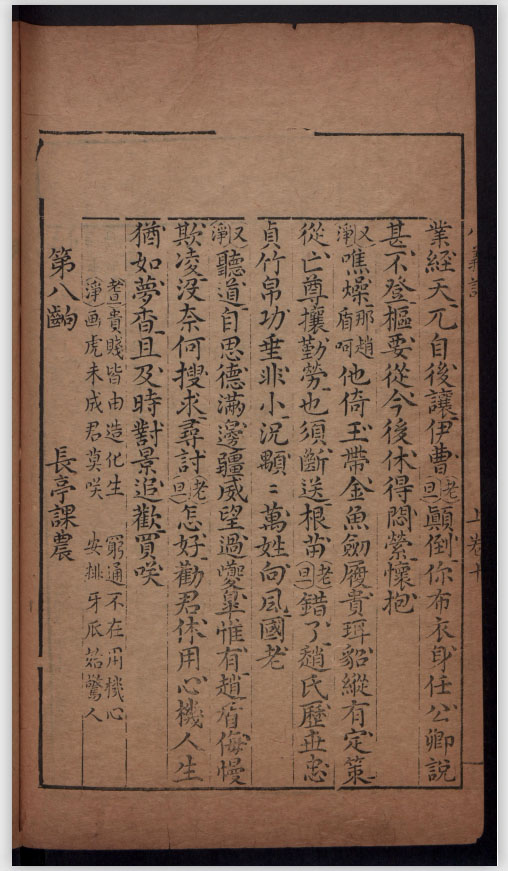 業經天兀自後讓伊曹老旦顛倒你布衣身任公卿說
甚不登樞要從今後休得悶縈懷抱
又淨噍燥那趙盾呵他倚玉帶金魚劒履貴珥貂縱有定策
從亡尊攘勤勞也須斷送根苗老旦錯了趙氏歷世忠
貞竹帛功垂非小況顒〻萬姓向風國老
又淨聽道自思德滿邊疆威望過夔皐惟有趙盾侮慢
欺凌没奈何搜求尋討老旦怎好勸君休用心機人生
猶如夢杳且及時對景追歡買咲
老旦貴賤皆由造化生　窮通不在用機心
淨画虎未成君莫咲　安排牙爪始驚人
第八齣　長亭課農
上卷十